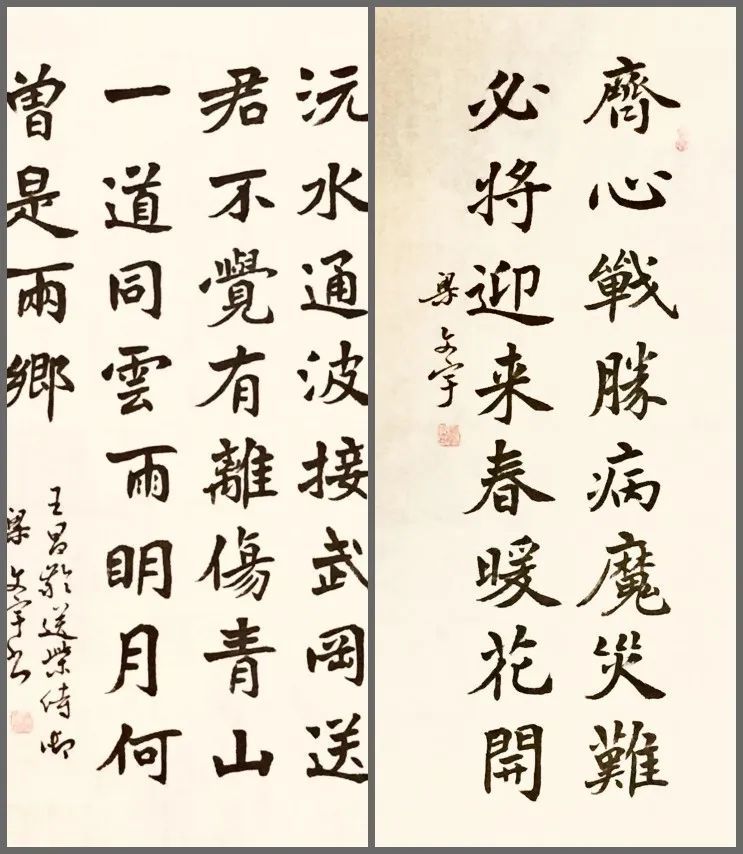 沅水通波接武岡送
君不覺有離傷青山
一道同雲雨明月何
曾是兩鄉
王昌齡送柴侍御
梁文宇书
齊心戰勝病魔災難
必將迎来春暖花開
梁文宇